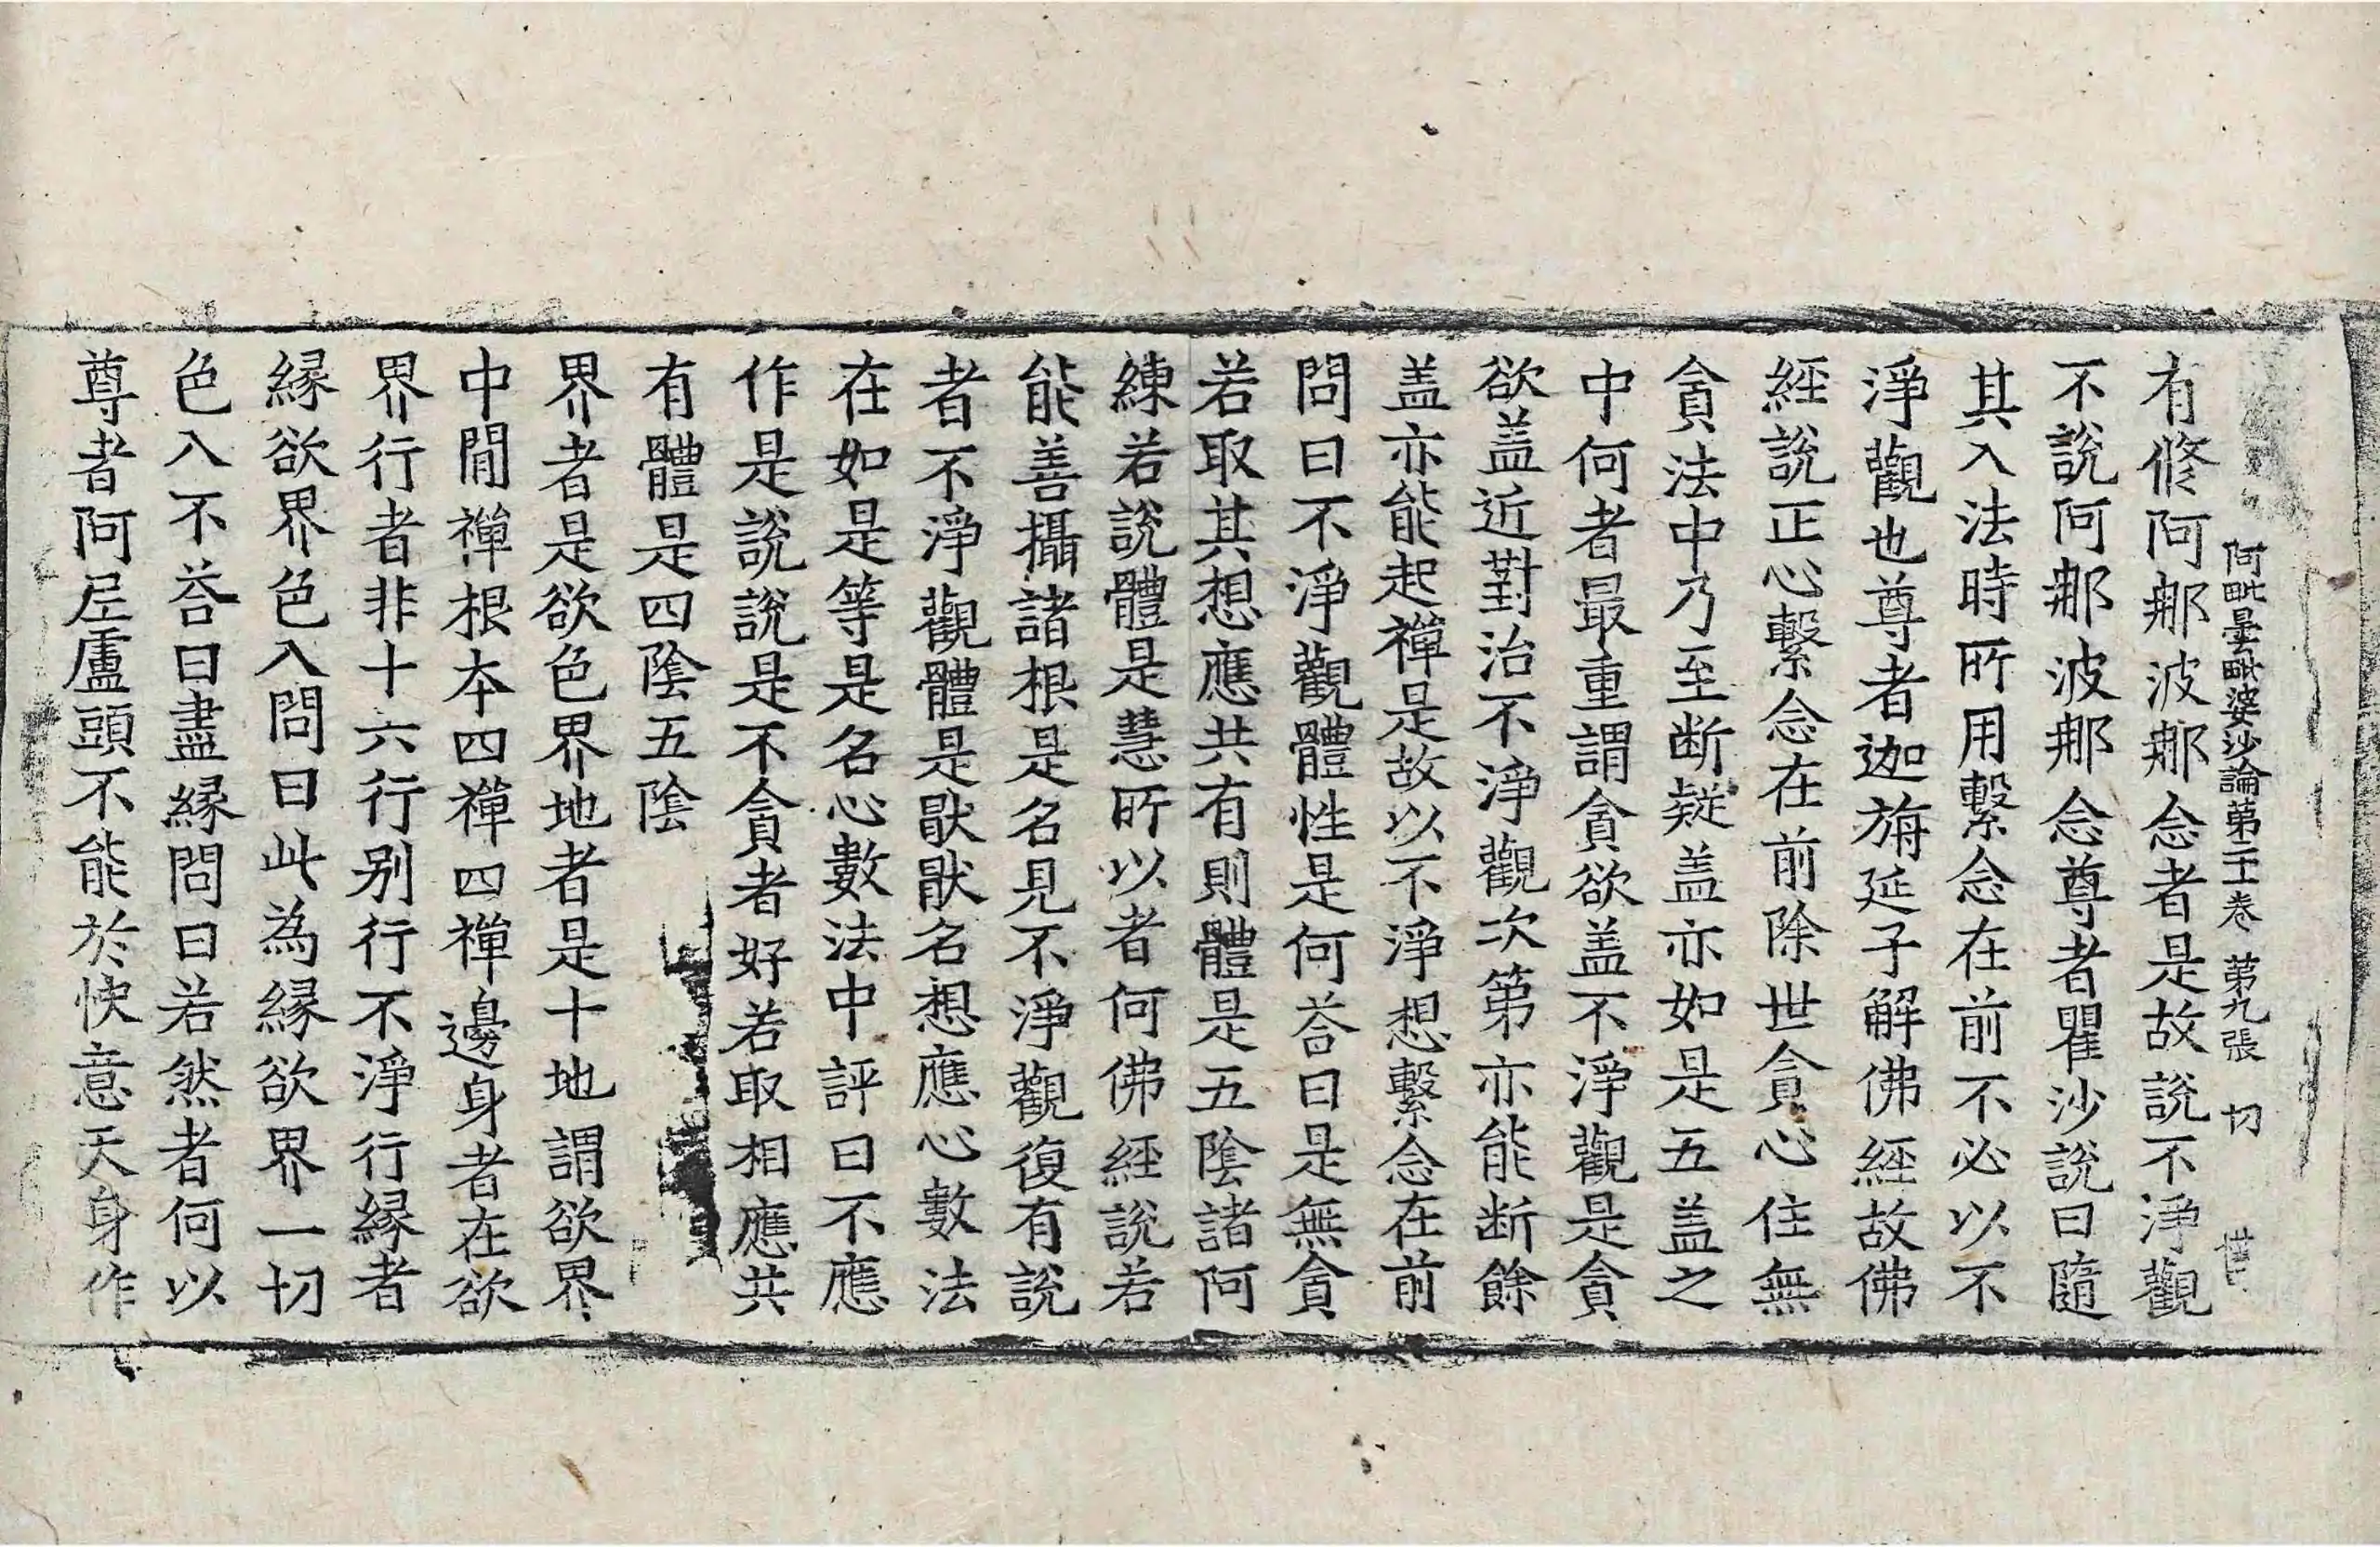 阿毗曇毗婆沙論第二十卷 第九張 切
有脩阿那波那念者是故說不淨觀
不說阿那波那念尊者瞿沙說曰隨
其入法時所用繫念在前不必以不
淨觀也尊者迦旃延子解佛經故佛
經說正心繫念在前除世貪心住無
貪法中乃至断疑盖亦如是五盖之
中何者最重謂貪欲盖不淨觀是貪
欲盖近對治不淨觀次第亦能断餘
盖亦能起禪是故以不淨想繫念在前
問曰不淨觀體性是何荅曰是無貪
若取其想應共有則體是五陰諸阿
練若說體是慧所以者何佛經說若
能善攝諸根是名見不淨觀復有說
者不淨觀體是猒猒名想應心數法
在如是等是名心數法中評曰不應
作是說說是不貪者好若取相應共
有體是四陰五陰
界者是欲色界地者是十地謂欲界
中間禪根本四禪四禪邊身者在欲
界行者非十六行別行不淨行緣者
緣欲界色入問曰此為緣欲界一切
色入不荅曰盡緣問曰若然者何以
尊者阿𡰱盧頭不能於快意天身作